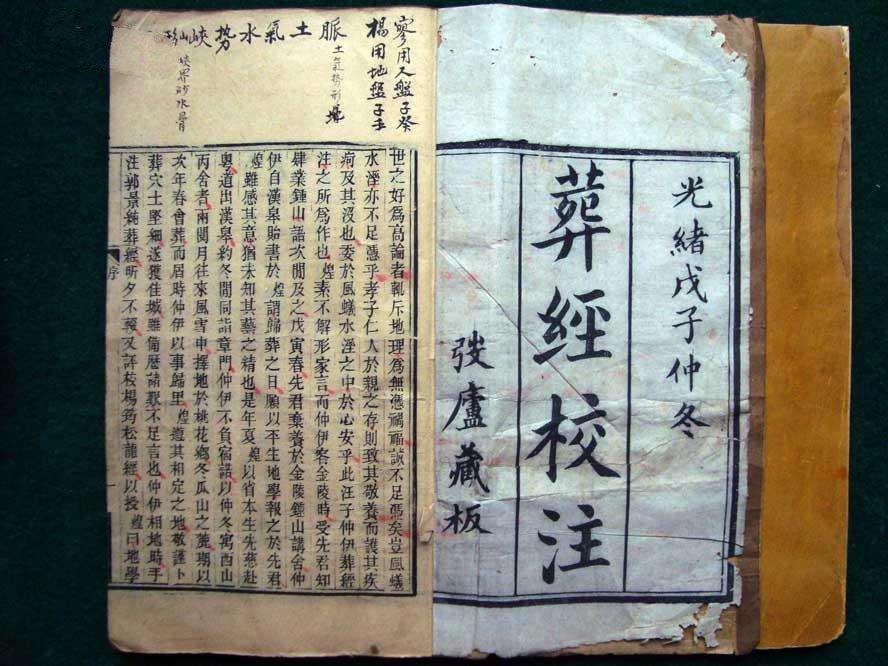 光緒戊子仲冬
葬經校注
弢廬藏板
寥用人盤子癸
楊用地盤子壬
脈土氣水勢峽
土氣勢形
峽界砂水骨
世之好為高論者輒斥地理為無憑禍福誠不足憑矣豈風蟻
水溼亦不足憑乎孝子仁人於親之存則致其敬養而護其疾
病及其沒也委於風蟻水溼之中於心安乎此汪子仲伊葬經
注之所為作也煌素不解形家言而仲伊客金陵時受先君知
肄業鍾山語次閒及之戊寅春先君棄養於金陵鍾山講舍仲
伊自漢皋貽書於煌謂歸葬之日願以平生地學報之於先君
煌雖感其意猶未知其藝之精也是年夏煌以省本生先慈赴
粵道出漢皋約冬閒同詣章門仲伊不負宿諾以仲冬寓西山
丙舍者兩閱月往來風雪中擇地於桃花鄉冬瓜山之麓以
次年春會葬而屆時仲伊以事歸里煌遵其相定之地敬謹卜
葬穴土堅細遂獲佳城雖不足言也仲伊相地時手
注郭景純葬經昕夕不輟又評校楊筠松龍經以授煌曰地學
序
一